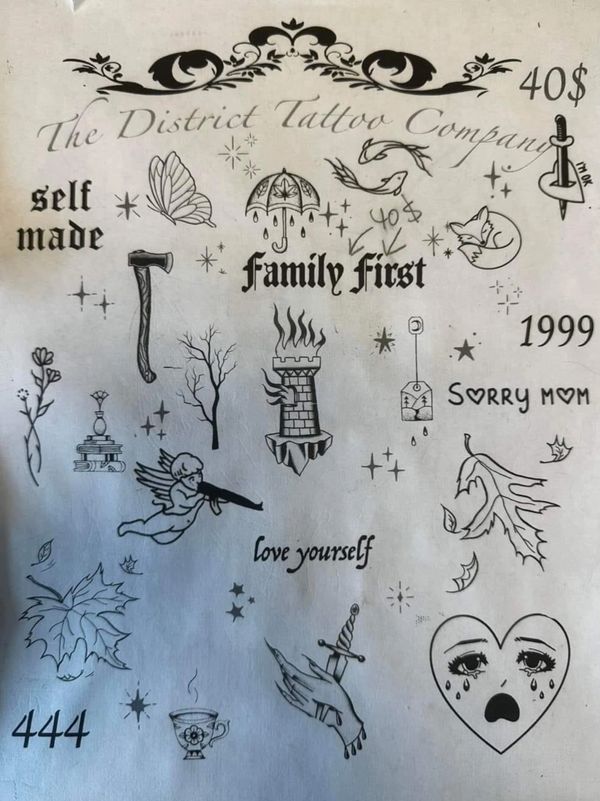 40$
The District Tattoo Company
I'M OK
self
made
40$
Family First
1999
SORRY MOM
love yourself
444